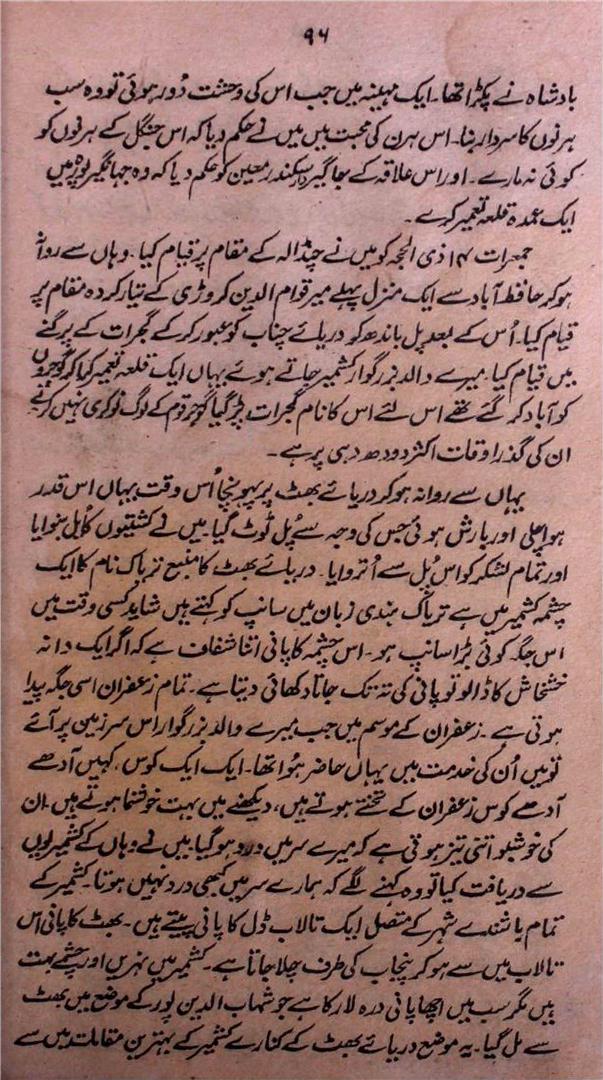 ۹۶
بادشاہ نے پکڑا تھا۔ ایک مہینہ میں جب اس کی وحشت دُور ہوئی تو وہ سب
ہرنوں کا سردار بنا۔ اس ہرن کی محبت میں میں نے حکم دیا کہ اس جنگل کے ہرنوں کو
کوئی نہ مارے۔ اور اس علاقہ کے جاگیردار سکندر معین کو حکم دیا کہ وہ جہانگیر پور میں
ایک عمدہ قلعہ تعمیر کرے۔
جمعرات ۱۴ ذی الحجہ کو میں نے چنڈالہ کے مقام پر قیام کیا۔ وہاں سے روانہ
ہو کر حافظ آباد سے ایک منزل پہلے میر قوام الدین کروڑی کے تیار کردہ مقام پر
قیام کیا۔ اُس کے بعد پل باندھ کو دریائے چناب کو عبور کر کے گجرات کے پرگنے
میں قیام کیا۔ میرے والد بزرگوار کشمیر جاتے ہوئے یہاں ایک قلعہ تعمیر کیا کر گوجروں
کو آباد کر گئے تھے اس لئے اس کا نام گجرات پڑ گیا گوجر قوم کے لوگ نوکری نہیں کرتے
ان کی گذر اوقات اکثر دودھ دہی پر ہے۔
یہاں سے روانہ ہو کر دریائے بھٹ پر پہونچا اُس وقت یہاں اس قدر
ہوا چلی اور بارش ہوئی جس کی وجہ سے پُل ٹوٹ گیا۔ میں نے کشتیوں کا پُل بنوایا
اور تمام لشکر کو اس پُل سے اُتروایا۔ دریائے بھٹ کا منبع تریاک نام کا ایک
چشمہ کشمیر میں ہے تریاک ہندی زبان میں سانپ کو کہتے ہیں شاید کسی وقت میں
اس جگہ کوئی بڑا سانپ ہو۔ اس چشمہ کا پانی اتنا شفاف ہے کہ اگر ایک دانہ
خشخاش کا ڈالو تو پانی کی تہ تک جاتا دکھائی دیتا ہے۔ تمام زعفران اسی جگہ پیدا
ہوتی ہے۔ زعفران کے موسم میں جب میرے والد بزرگوار اس سرزمین پر آئے
تو میں اُن کی خدمت میں یہاں حاضر ہُوا تھا۔ ایک ایک کوس، کہیں آدھے
آدھے کوس زعفران کے تختے ہوتے ہیں، دیکھنے میں بہت خوشنما ہوتے ہیں۔ ان
کی خوشبو اتنی تیز ہوتی ہے کہ میرے سر میں درد ہو گیا۔ میں نے وہاں کے کشمیریوں
سے دریافت کیا تو وہ کہنے لگے کہ ہمارے سر میں کبھی درد نہیں ہوتا۔ کشمیر کے
تمام باشندے شہر کے متصل ایک تالاب ڈل کا پانی پیتے ہیں۔ بھٹ کا پانی اس
تالاب میں سے ہو کر پنجاب کی طرف چلا جاتا ہے۔ کشمیر میں نہریں اور چشمے بہت
ہیں مگر سب میں اچھا پانی درہ لار کا ہے جو شہاب الدین پور کے موضع میں بھٹ
سے مل گیا۔ یہ موضع دریائے بھٹ کے کنارے کشمیر کے بہترین مقامات میں سے